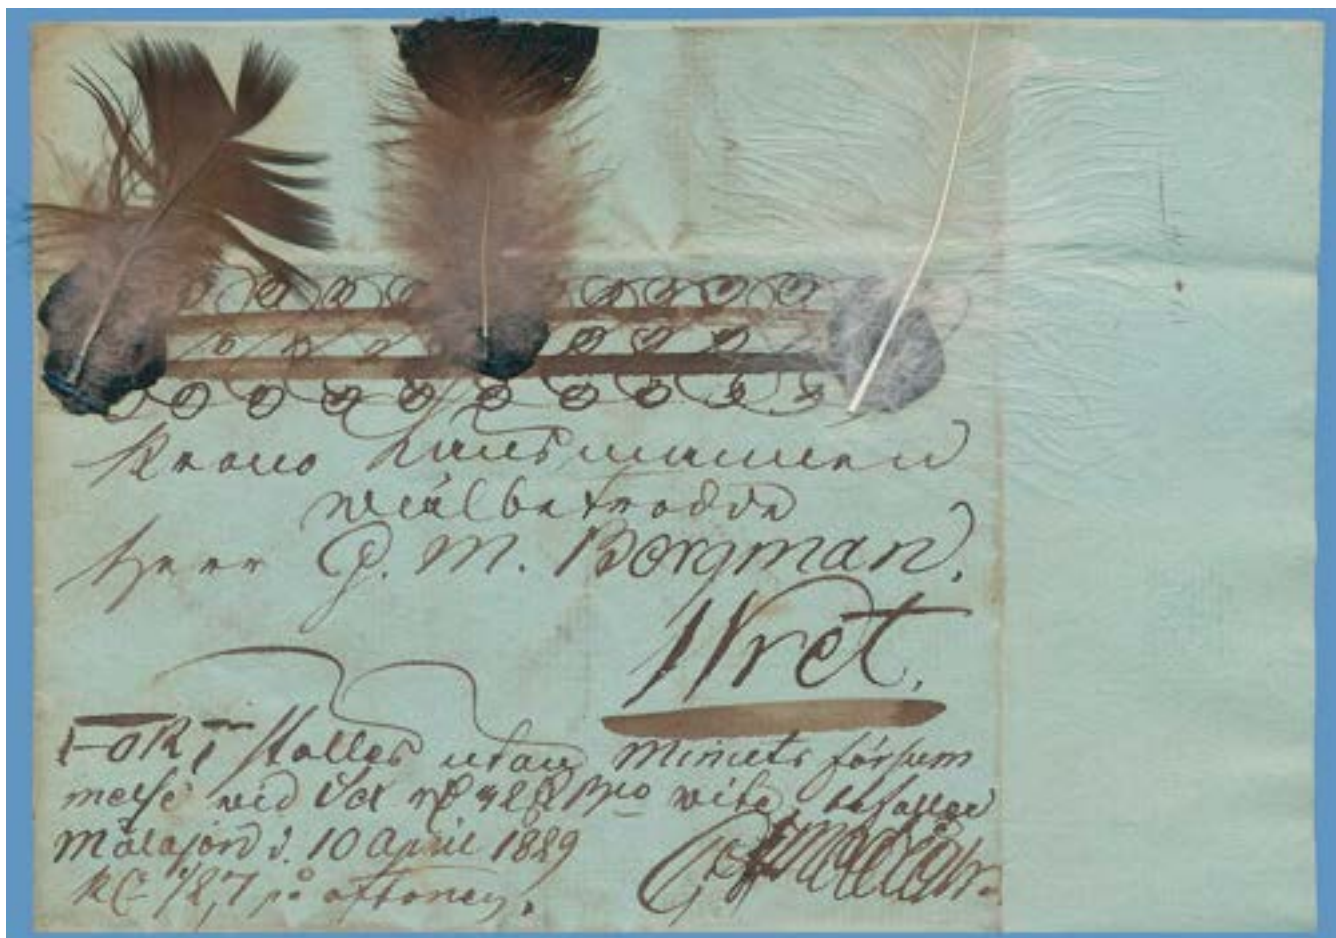 Krono Länsmannen
wälbetrodde
Herr G. M. Borgman.
Wret.
Fortskaffas utan Minuts försum
melse vid wite, befaller
Målajord d. 10 April 1829
Kl. 1/2 7 på aftonen.